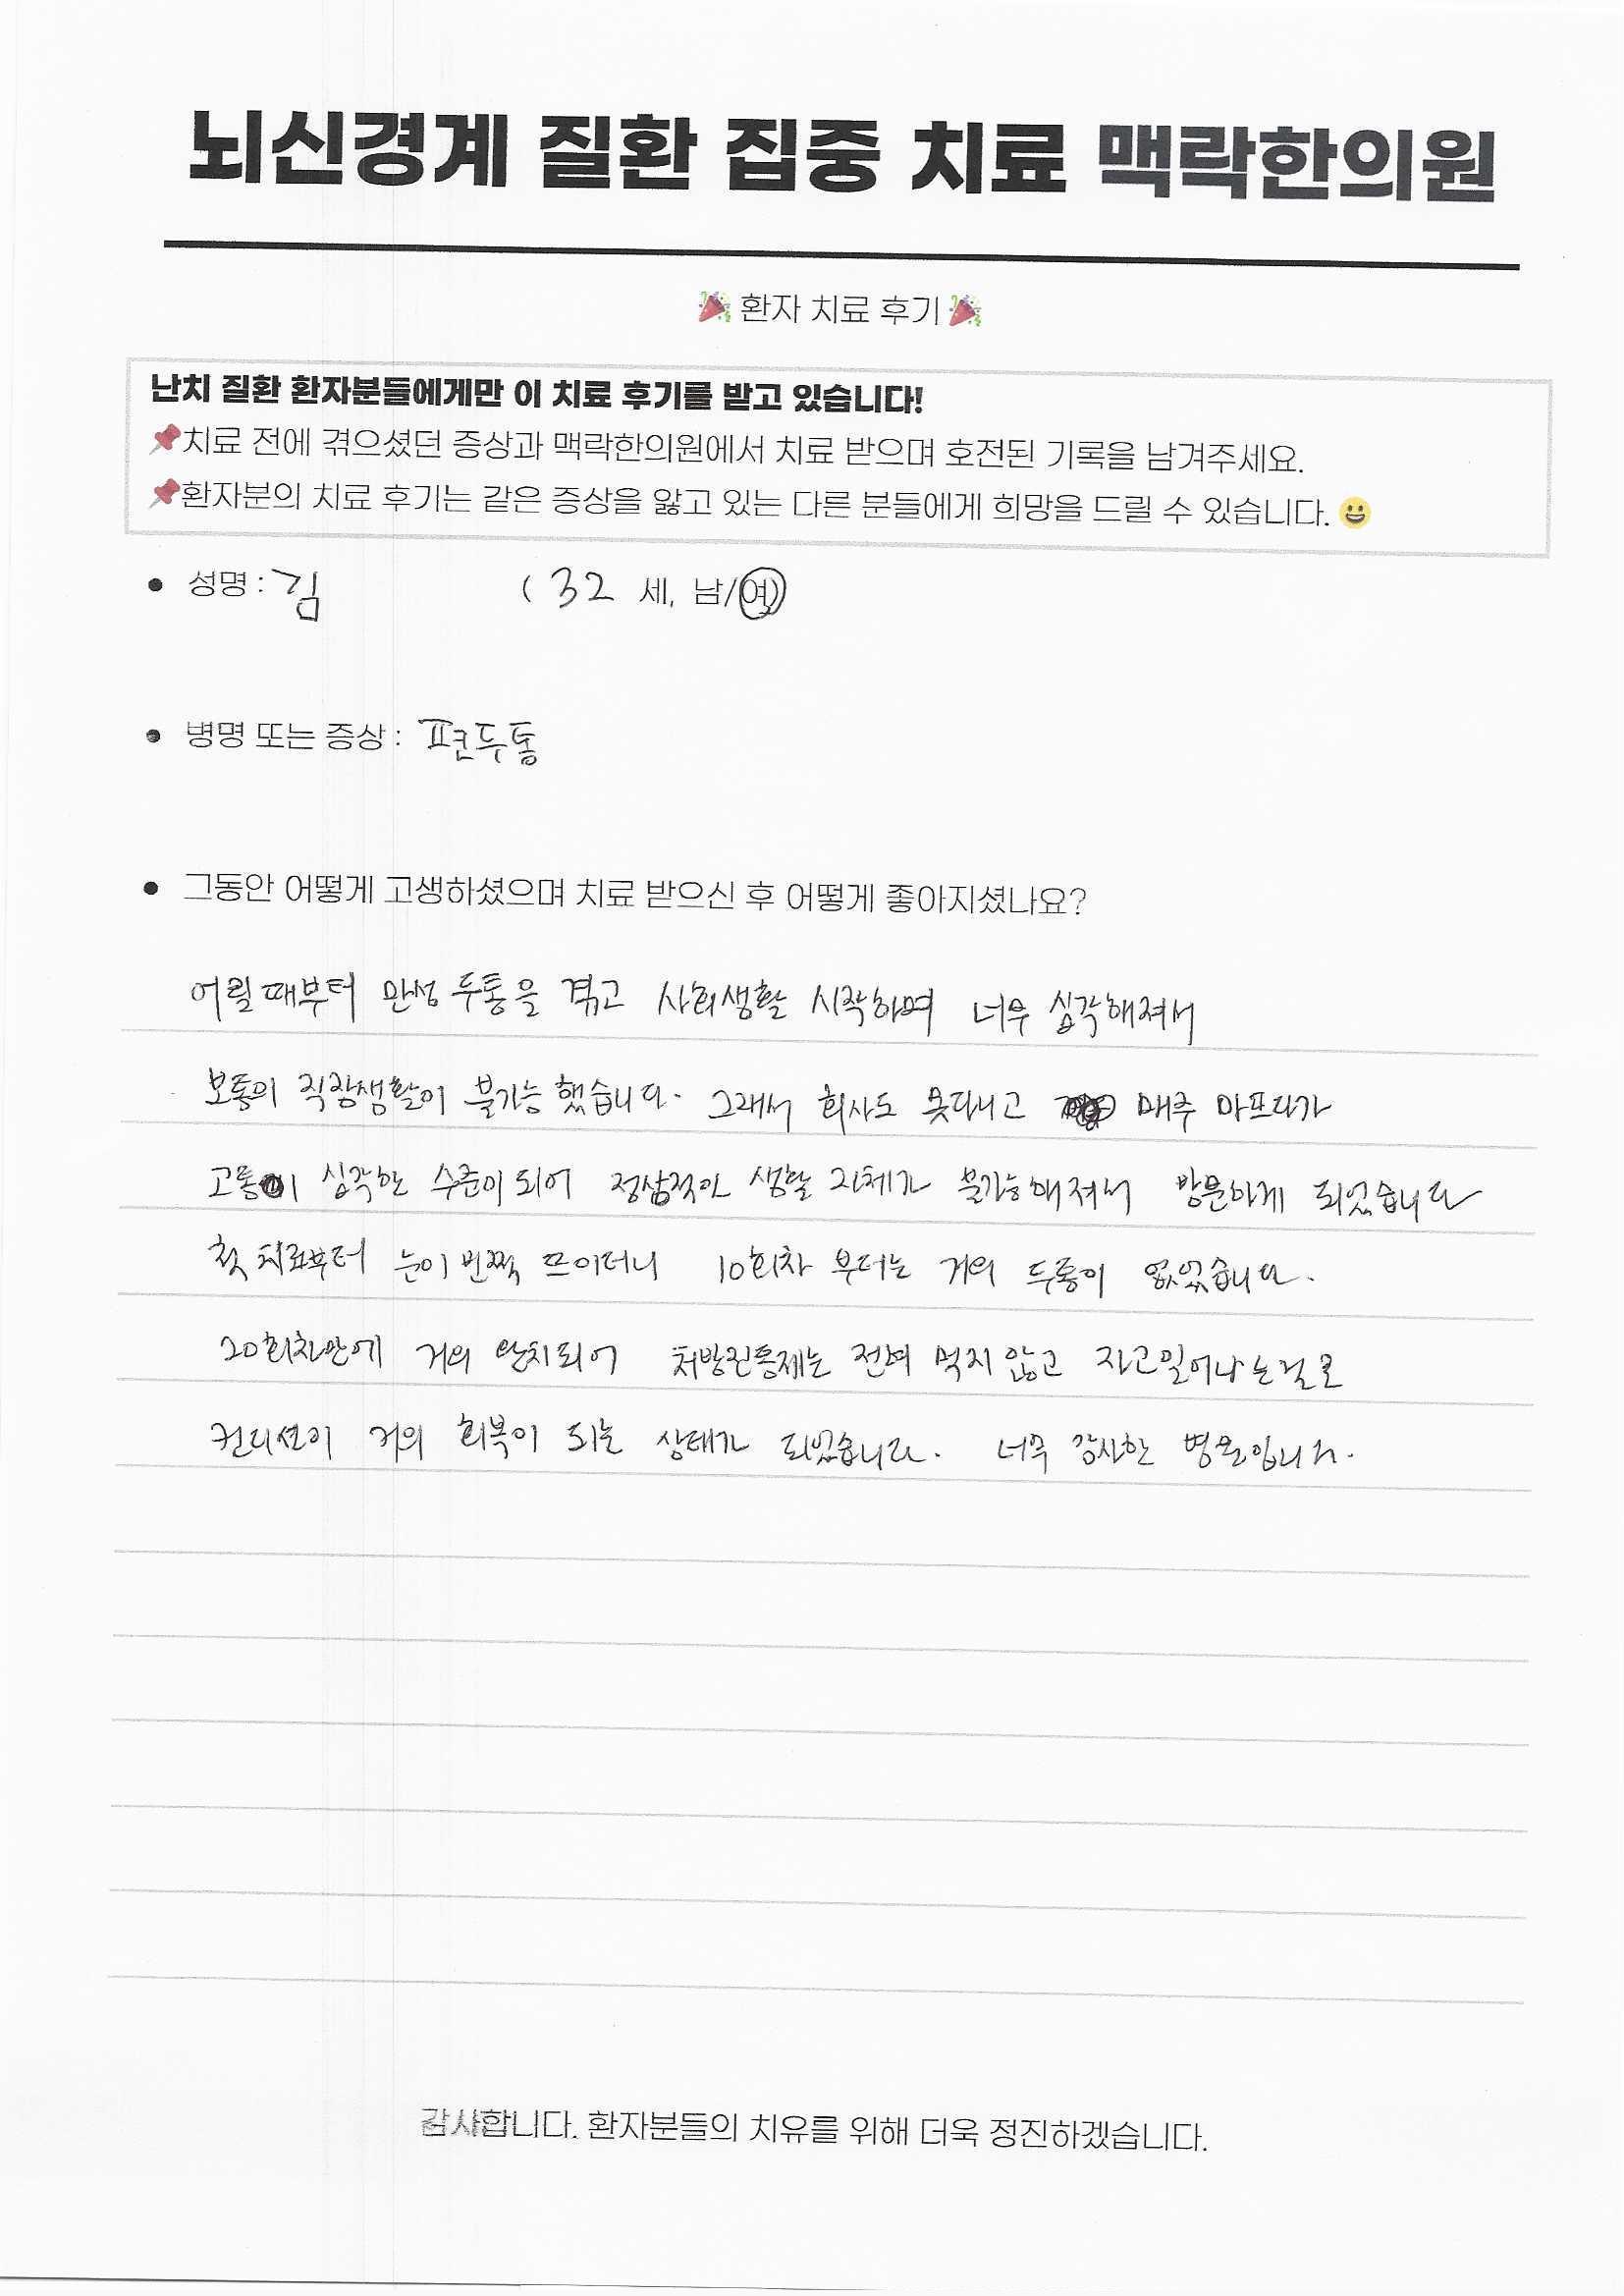 뇌신경계 질환 집중 치료 맥락한의원
🎉 환자 치료 후기 🎉
난치 질환 환자분들에게만 이 치료 후기를 받고 있습니다!
📌치료 전에 겪으셨던 증상과 맥락한의원에서 치료 받으며 호전된 기록을 남겨주세요.
📌환자분의 치료 후기는 같은 증상을 앓고 있는 다른 분들에게 희망을 드릴 수 있습니다. 😀
• 성명 : 김 ( 32 세, 남/여)
• 병명 또는 증상 : 편두통
• 그동안 어떻게 고생하셨으며 치료 받으신 후 어떻게 좋아지셨나요?
어릴때부터 만성 두통을 겪고 사회생활 시작하며 너무 심각해져서
보통의 직장생활이 불가능했습니다. 그래서 회사도 못다니고 매주 아프다가
고통이 심각한 수준이 되어 정상적인 생활 자체가 불가능해져서 방문하게 되었습니다
첫 치료부터 눈이 번쩍 뜨이더니 10회차 부터는 거의 두통이 없었습니다.
20회차만에 거의 완치되어 처방진통제는 전혀 먹지 않고 자고일어나는걸로
컨디션이 거의 회복이 되는 상태가 되었습니다. 너무 감사한 병원입니다.
감사합니다. 환자분들의 치유를 위해 더욱 정진하겠습니다.